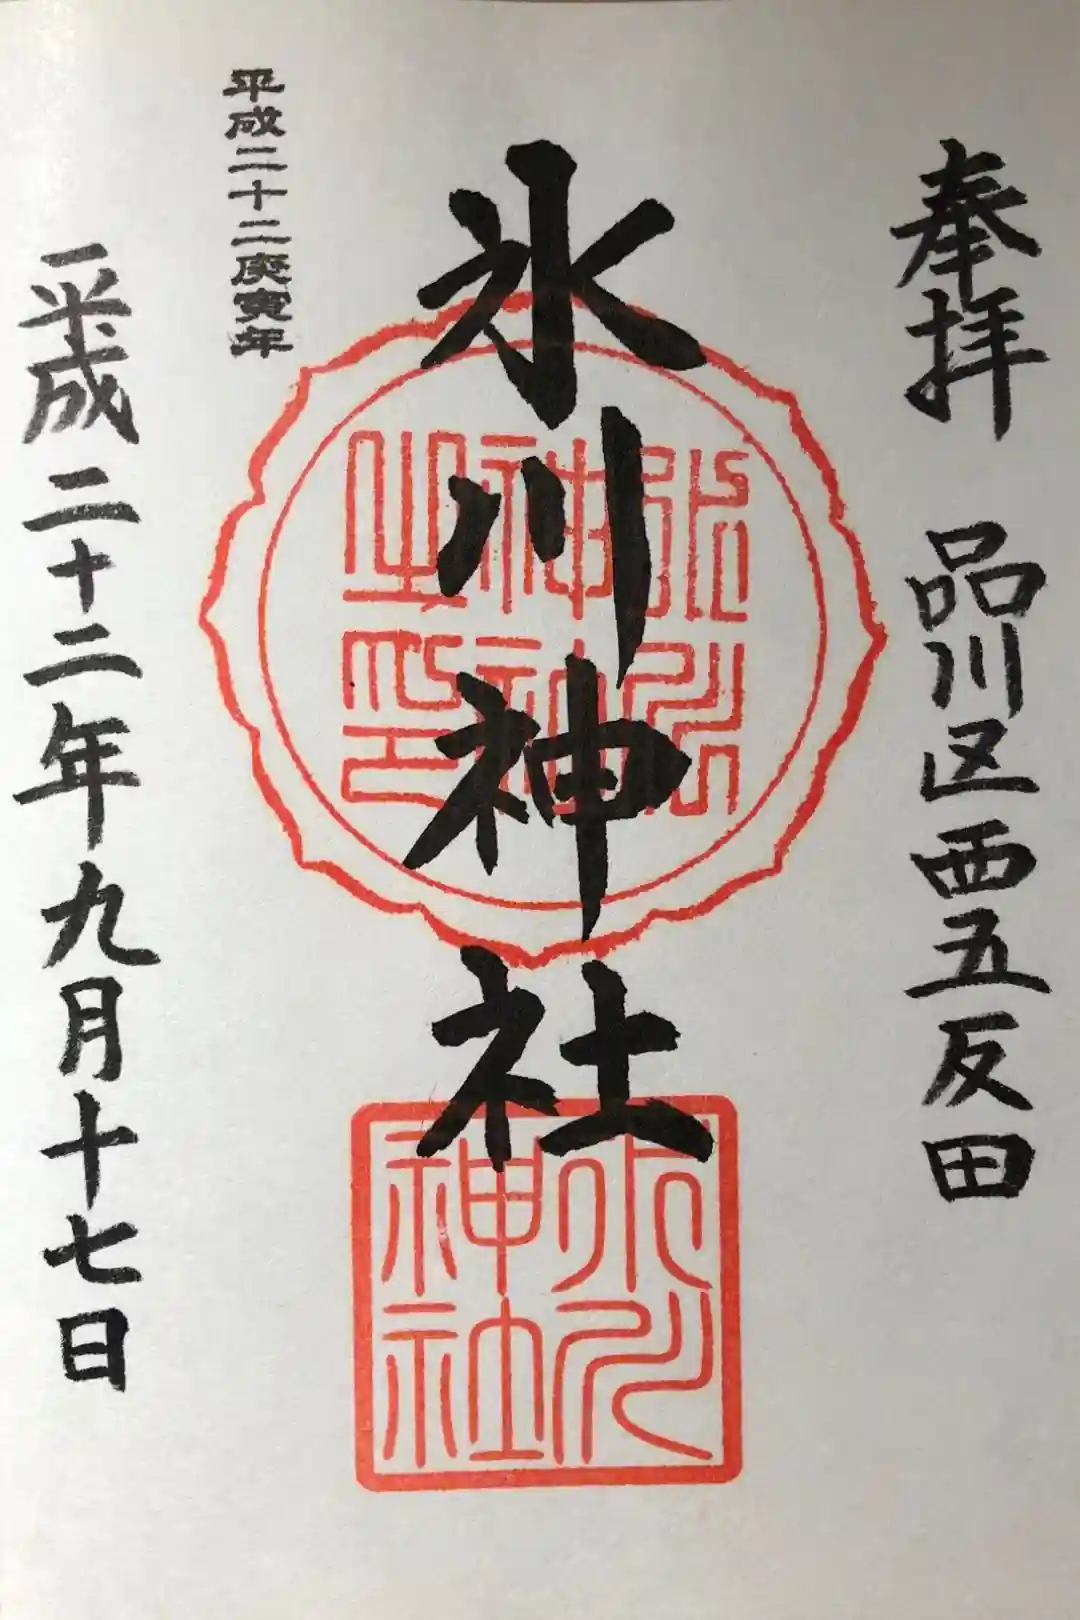 奉拝 品川区西五反田
氷川神社
氷川
神社
之印
氷川
神社
平成二十二庚寅年
平成二十二年九月十七日